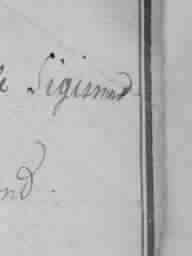 Sigismund
nd.